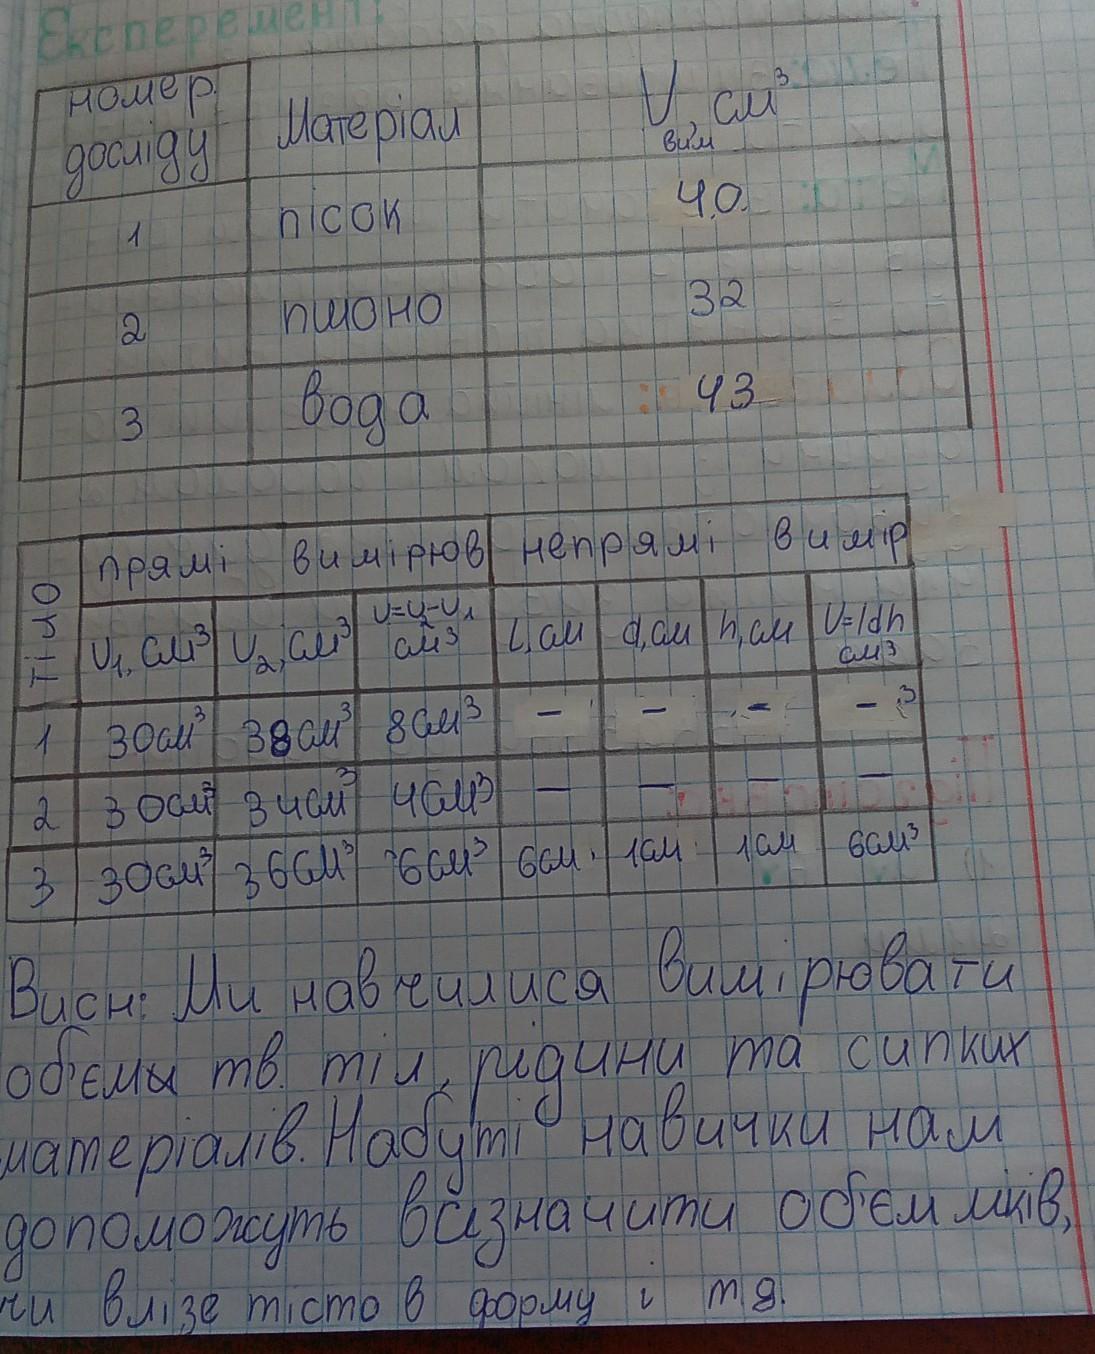 Експеремент:
номер досліду Матеріал V вим, см³
1 пісок 40
2 пшоно 32
3 вода 43
Тіло прямі вимірюв непрямі вимір
V₁, см³ V₂, см³ V=V₂-V₁ см³ l, см d, см h, см V=ldh см³
1 30см³ 38см³ 8см³ - - - - ³
2 30см³ 34см³ 4см³ - - - -
3 30см³ 36см³ 6см³ 6см 1см 1см 6см³
Висн: Ми навчилися вимірювати
об'ємы тв. тіл, рідини та сипких
матеріалів. Набуті навички нам
допоможуть визначити об'єм ліків,
чи влізе тісто в форму і т.д.